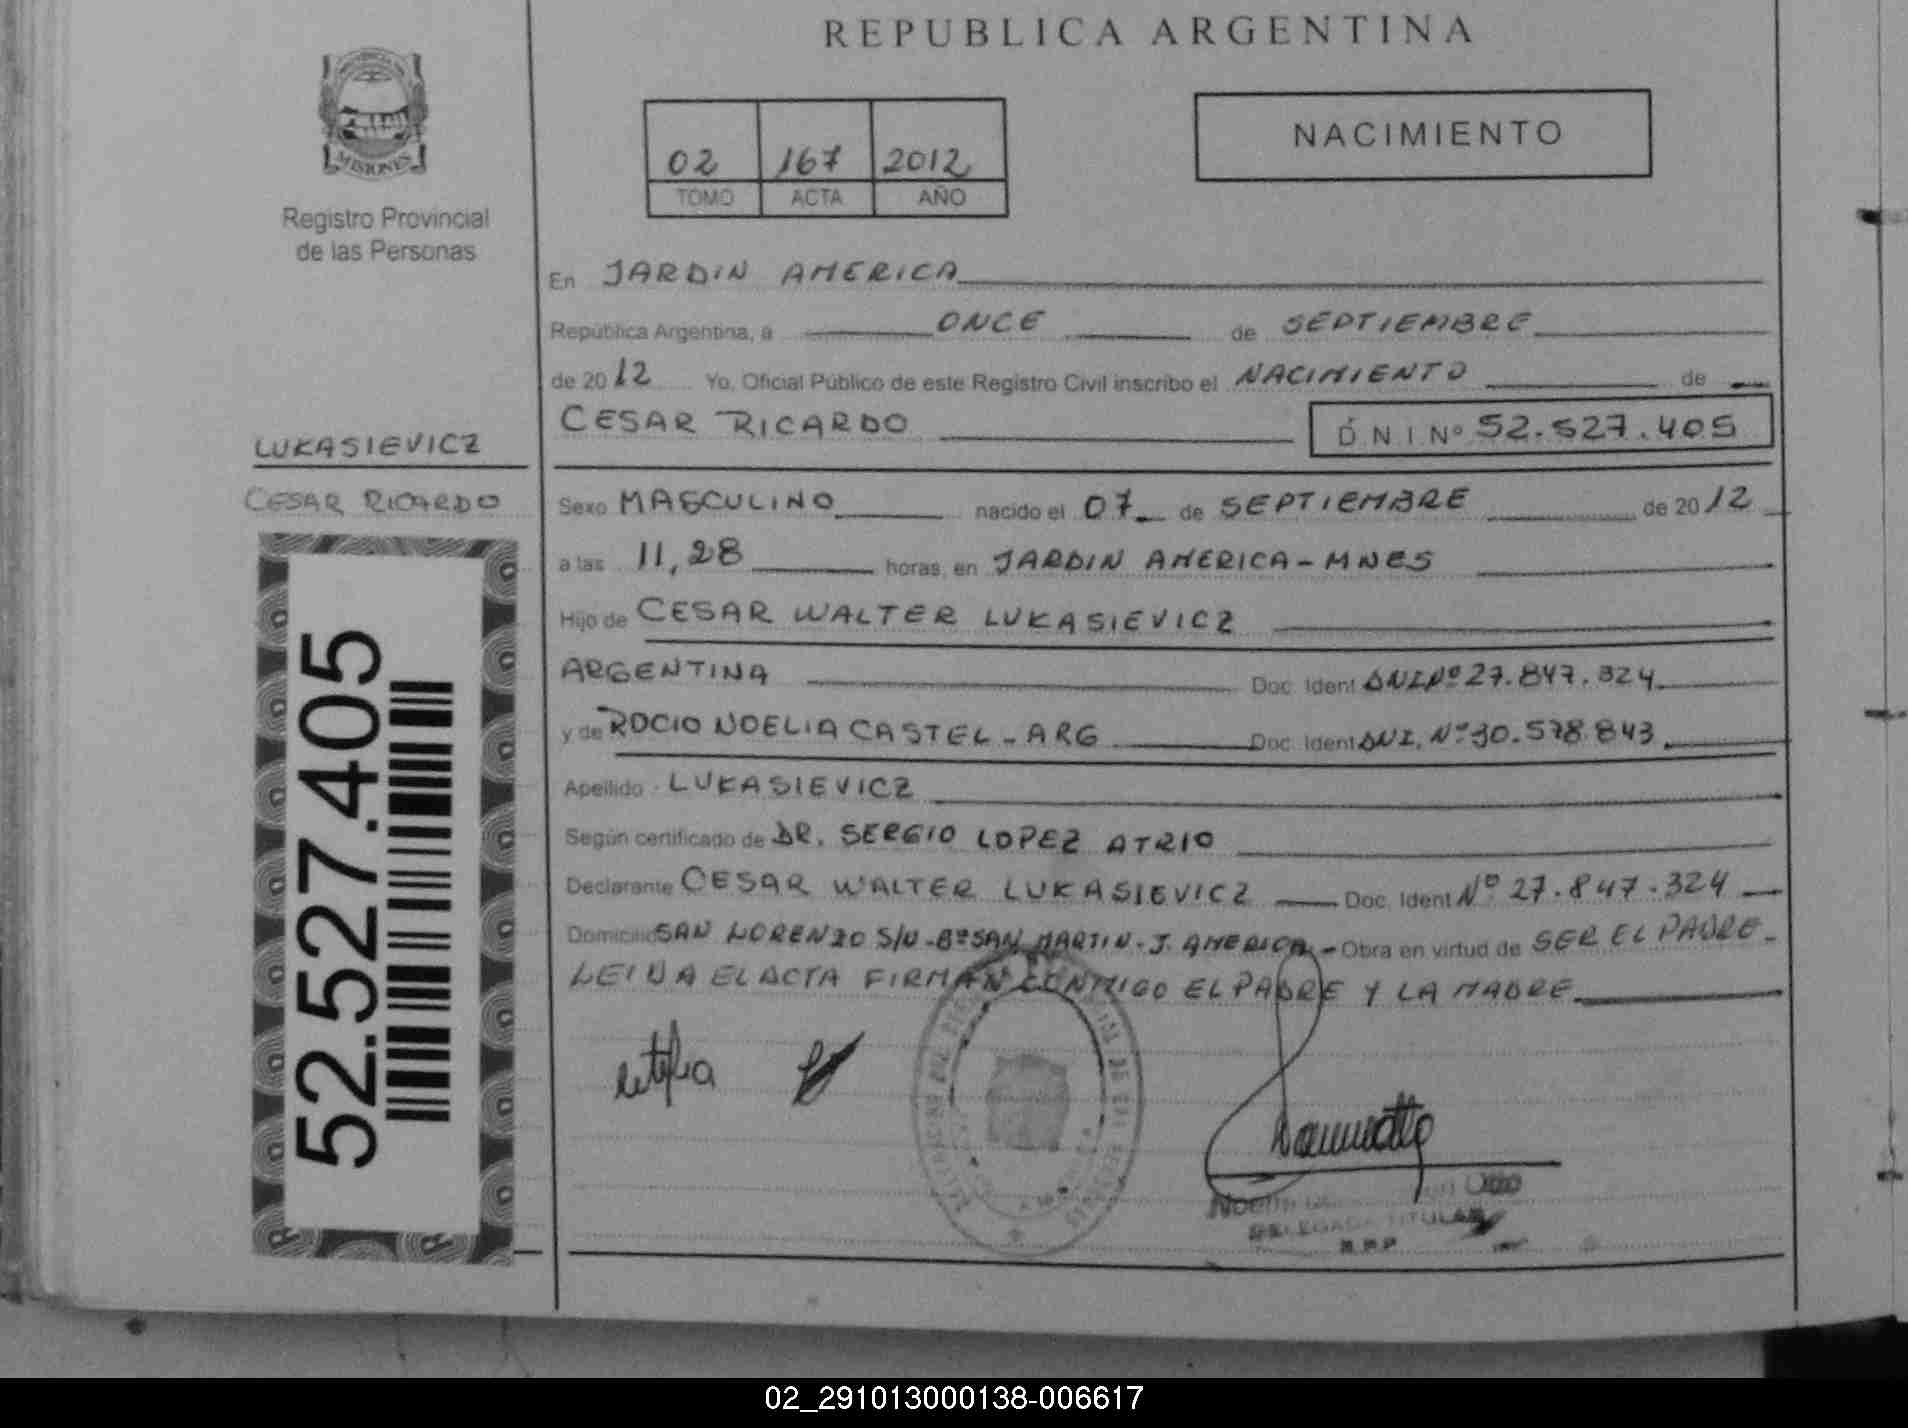 REPUBLICA ARGENTINA
MISIONES
Registro Provincial
de las Personas
02 167 2012
TOMO ACTA AÑO
NACIMIENTO
En JARDIN AMERICA
República Argentina, a ONCE de SEPTIEMBRE
de 2012 Yo, Oficial Público de este Registro Civil inscribo el NACIMIENTO de
CESAR RICARDO D N I Nº 52.527.405
LUKASIEVICZ
CESAR RICARDO
52.527.405
Sexo MASCULINO nacido el 07 de SEPTIEMBRE de 2012
a las 11,28 horas, en JARDIN AMERICA - MNES
Hijo de CESAR WALTER LUKASIEVICZ
ARGENTINA Doc. Ident DNI Nº 27.847.324
y de ROCIO NOELIA CASTEL - ARG Doc. Ident DNI. Nº 30.578.843
Apellido LUKASIEVICZ
Según certificado de DR. SERGIO LOPEZ ATRIO
Declarante CESAR WALTER LUKASIEVICZ Doc. Ident Nº 27.847.324
Domicilio SAN LORENZO S/N - Bº SAN MARTIN - J. AMERICA - Obra en virtud de SER EL PADRE -
LEIDA EL ACTA FIRMAN CONMIGO EL PADRE Y LA MADRE
DELEGADA TITULAR
R.P.P
02_291013000138-006617